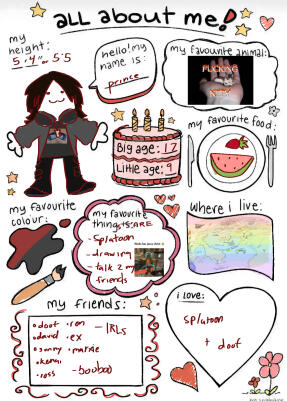 all about me!
my height:
5'4" or 5'5
hello! my name is:
prince
my favourite animal:
FUCKING
my favourite food:
Big age: 17
Little age: 9
my favourite colour:
my favourite things ARE
- Splatoon
- drawing
- talk 2 my friends
Where i live:
my friends:
• doof • ron - IRLs
• david • ex
• sunny
• ross - boobao
i love:
splatoon
+ doof